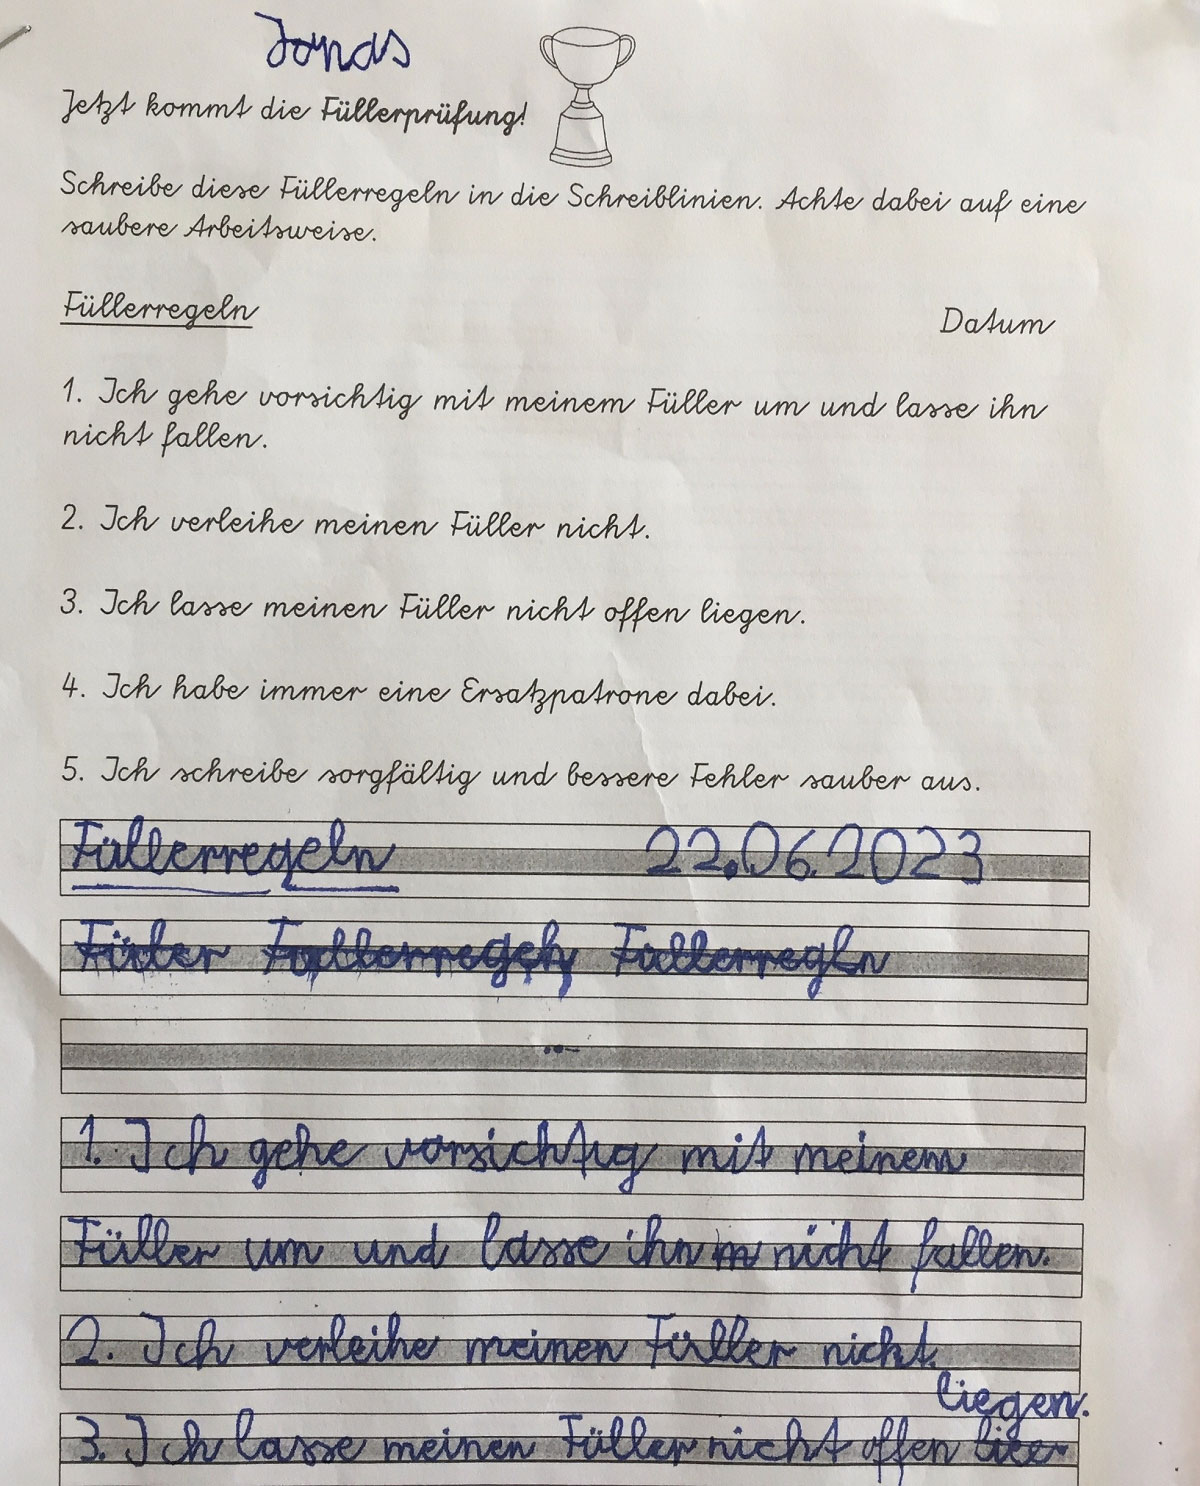 Jonas
Jetzt kommt die Füllerprüfung!
Schreibe diese Füllerregeln in die Schreiblinien. Achte dabei auf eine
saubere Arbeitsweise.
Füllerregeln Datum
1. Ich gehe vorsichtig mit meinem Füller um und lasse ihn
nicht fallen.
2. Ich verleihe meinen Füller nicht.
3. Ich lasse meinen Füller nicht offen liegen.
4. Ich habe immer eine Ersatzpatrone dabei.
5. Ich schreibe sorgfältig und bessere Fehler sauber aus.
Füllerregeln 22.06.2023
Füller Füllerregeln Füllerregln
1. Ich gehe vorsichtig mit meinem
Füller um und lasse ihn nicht fallen.
2. Ich verleihe meinen Füller nicht.
liegen.
3. Ich lasse meinen Füller nicht offen